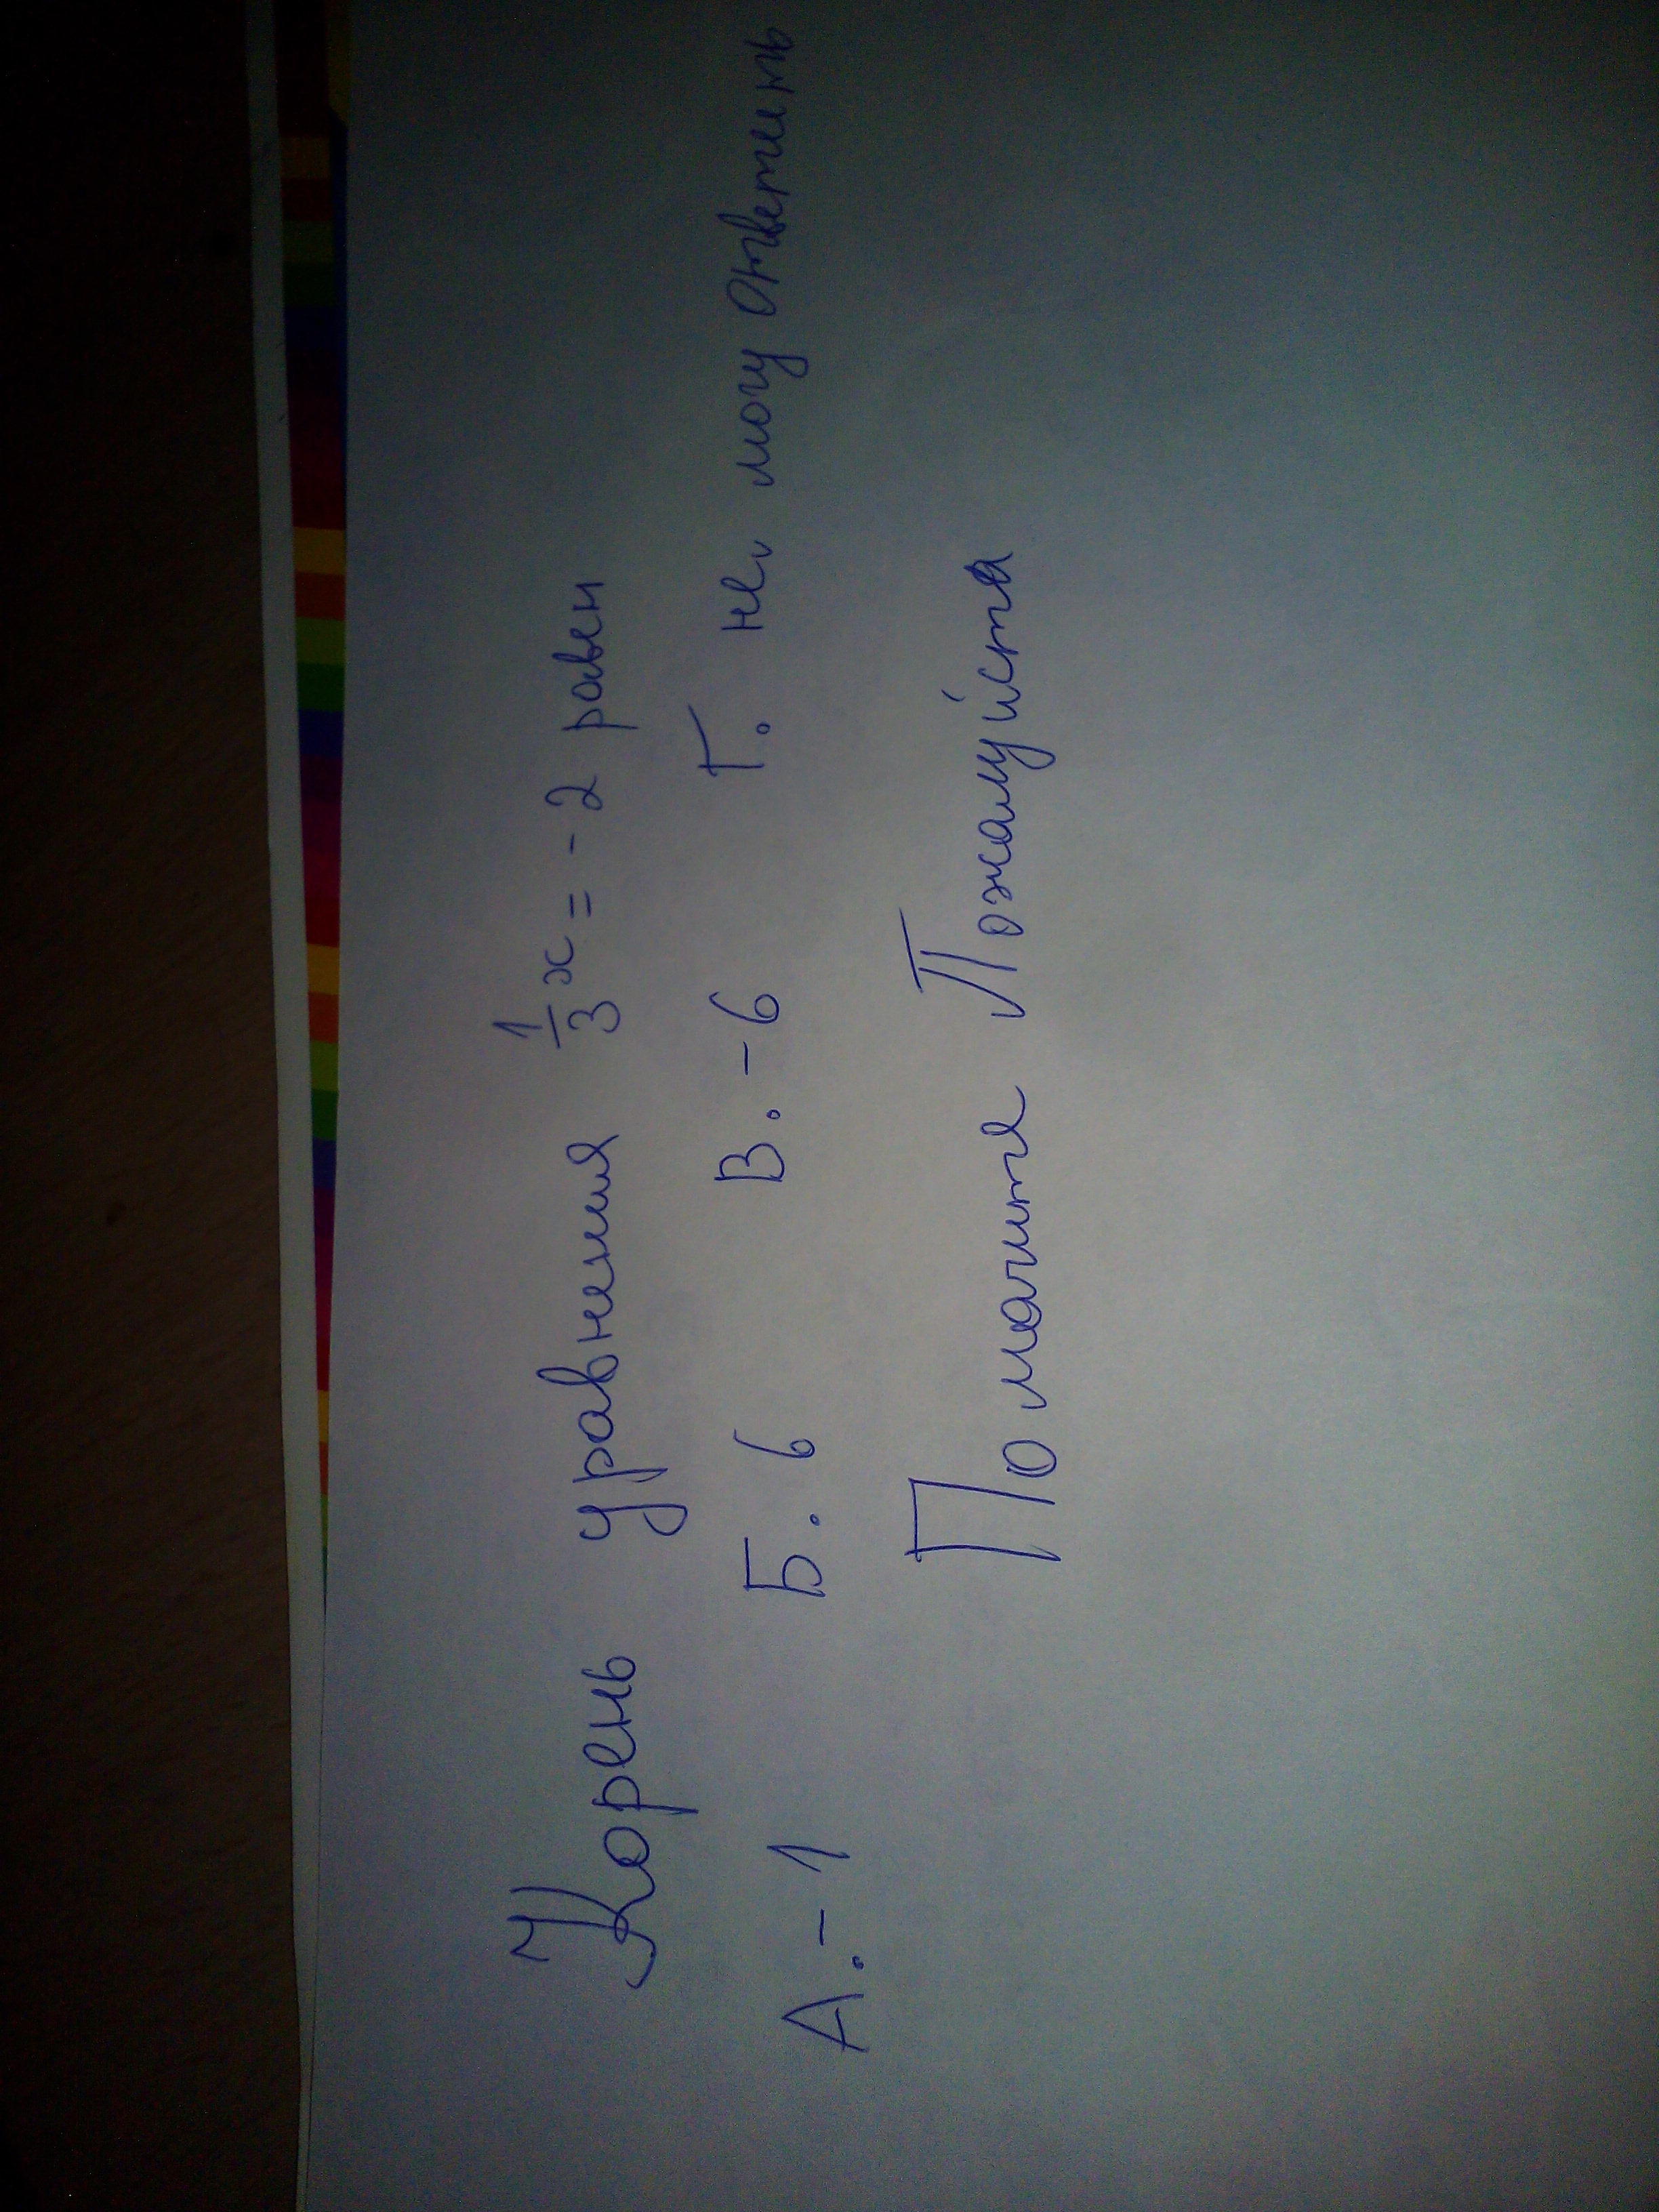 Корень уравнения 1/3 x = -2 равен
А. -1 Б. 6 В. -6 Г. не могу ответить
Помагите Пожалуйста